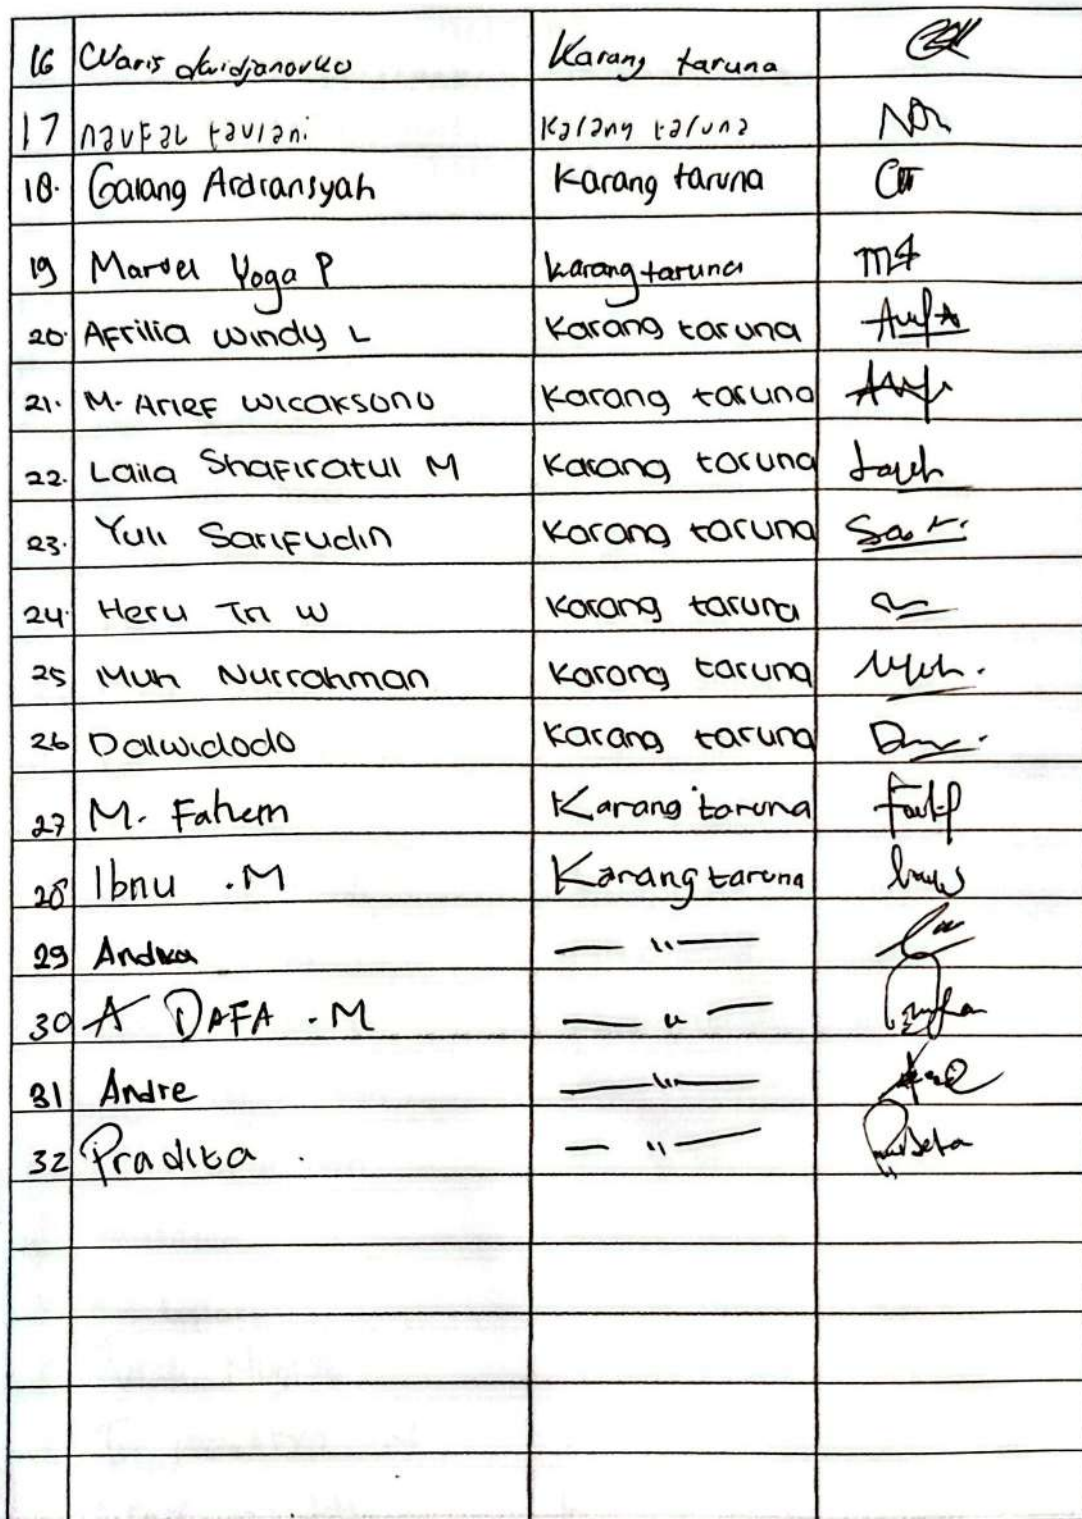 16 Waris dwidjanarko Karang taruna
17 naufal taviani Karang taruna
18. Galang Ardiansyah Karang taruna
19 Marvel Yoga P karang taruna
20. Afrilia windy L Karang taruna
21. M. Arief wicaksono Karang taruna
22. Laila Shafiratul M Karang taruna
23. Yuli Sarifudin Karang taruna
24. Heru Tri W Karang taruna
25 Muh Nurrahman Karang taruna
26 Dalwidodo Karang taruna
27 M. Fahem Karang taruna
28 Ibnu .M Karang taruna
29 Andika — " —
30 A DAFA .M — " —
31 Andre — " —
32 Pradita . — " —